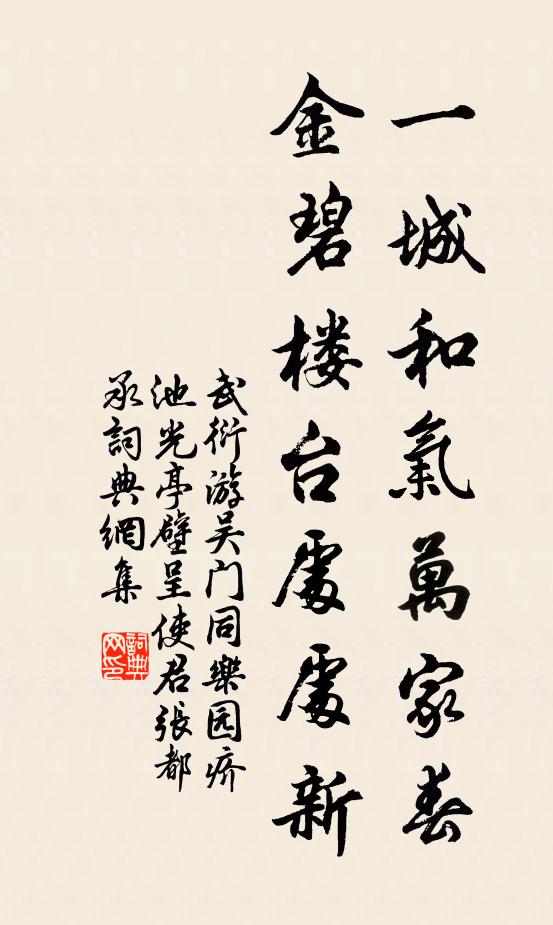 一城和氣萬家春
金碧楼台處處新
武衍游吴门同樂园疥
池光亭壁呈使君張都
承詞典網集
詞典网印